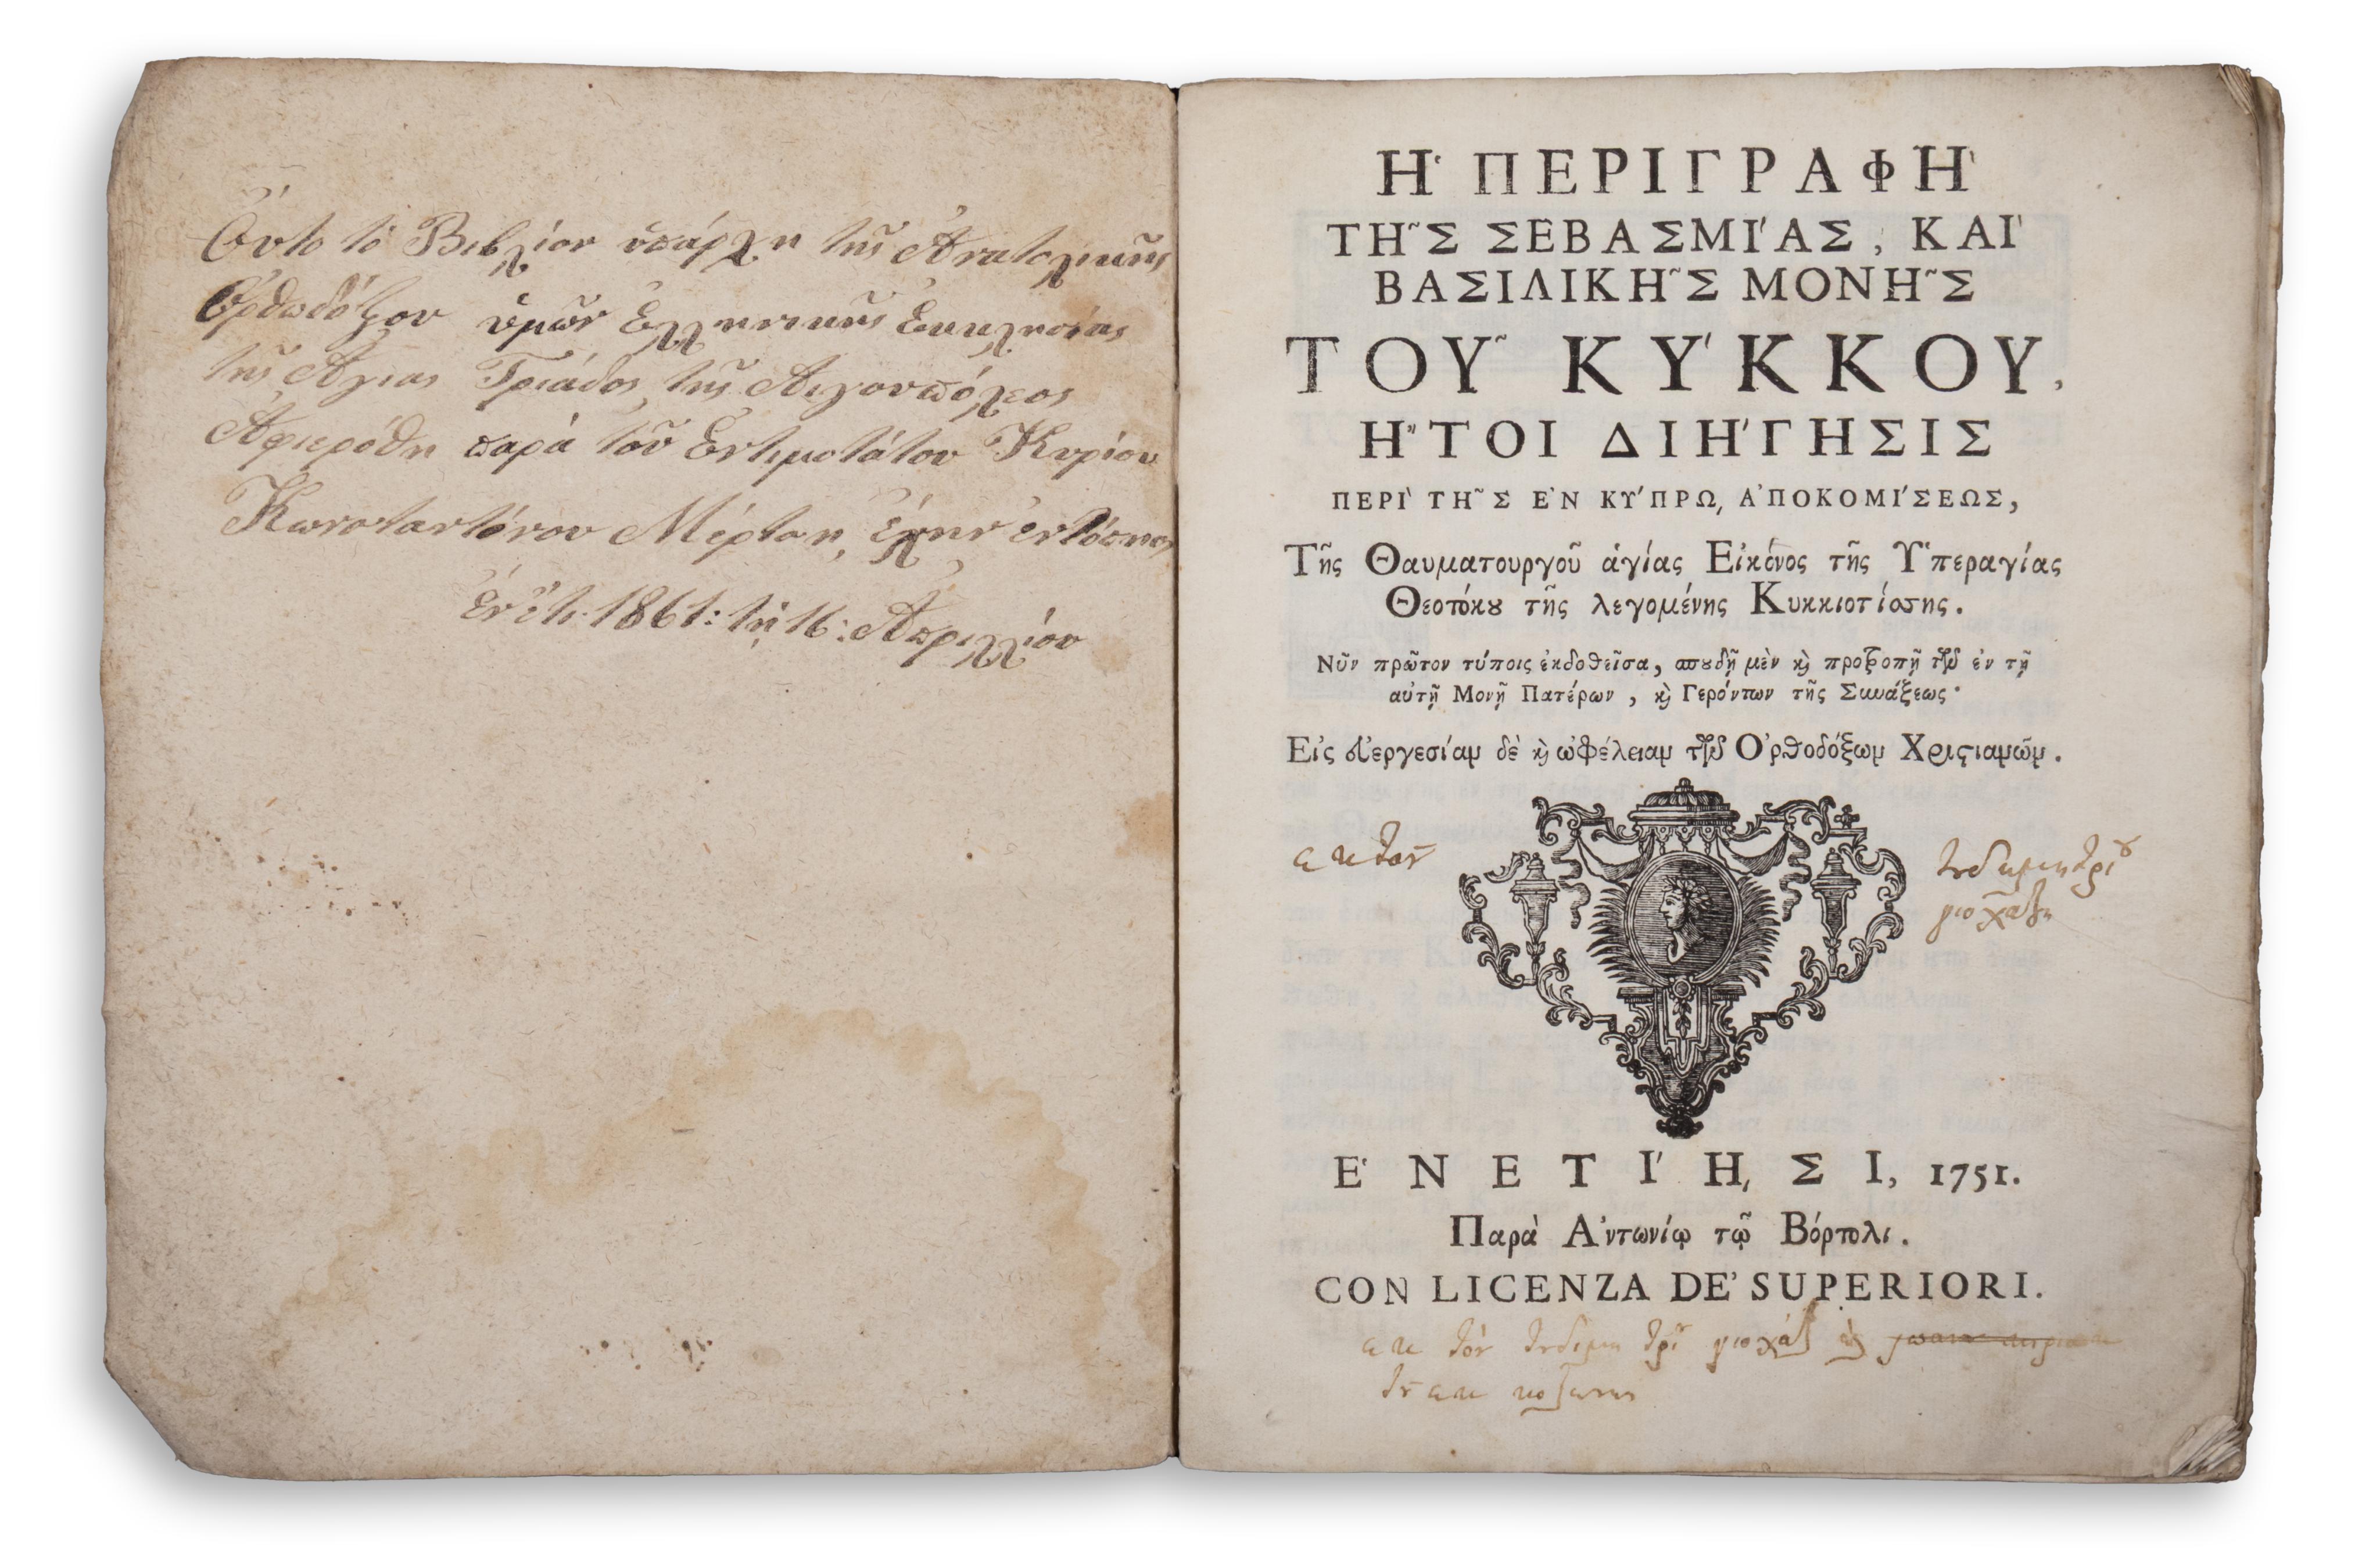 Ούτο τὸ Βιβλίον ὑπάρχη τῆς Ἀνατολικῆς
Ὀρθοδόξου ὑμῶν Ἑλληνικῆς Ἐκκλησίας
τῆς Αγιας Τριάδος, τῆς Λιγουπόλεος
Ἀφιερόθη παρὰ τοῦ Ἐντιμοτάτου Κυρίου
Κωνσταντόνου
Ἐν ἔτι 1861: τῇ 16: Ἀπριλλίου
Ἡ ΠΕΡΙΓΡΑΦῊ
ΤΗ͂Σ ΣΕΒΑΣΜΊΑΣ, ΚΑῚ
ΒΑΣΙΛΙΚΗ͂Σ ΜΟΝΗ͂Σ
ΤΟΥ͂ ΚΎΚΚΟΥ,
Ἤ͂ΤΟΙ ΔΙΉΓΗΣΙΣ
ΠΕΡῚ ΤΗ͂Σ ἘΝ ΚΎΠΡῼ, ἈΠΟΚΟΜΊΣΕΩΣ,
Τῆς Θαυματουργοῦ ἁγίας Εἰκόνος τῆς Ὑπεραγίας
Θεοτόκȣ τῆς λεγομένης Κυκκιοτίσσης.
Νῦν πρῶτον τύποις ἐκδοθεῖσα, σπȣδῇ μὲν ϗ̀ προτροπῇ τῶν ἐν τῇ
αὐτῇ Μονῇ Πατέρων, ϗ̀ Γερόντων τῆς Συνάξεως·
Εἰς εὐεργεσίαν δὲ ϗ̀ ὠφέλειαν τῶν Ὀρθοδόξων Χριϛιανῶν.
ἘΝΕΤΊῌΣΙ, 1751.
Παρὰ Ἀντωνίῳ τῷ Βόρτολι.
CON LICENZA DE' SUPERIORI.